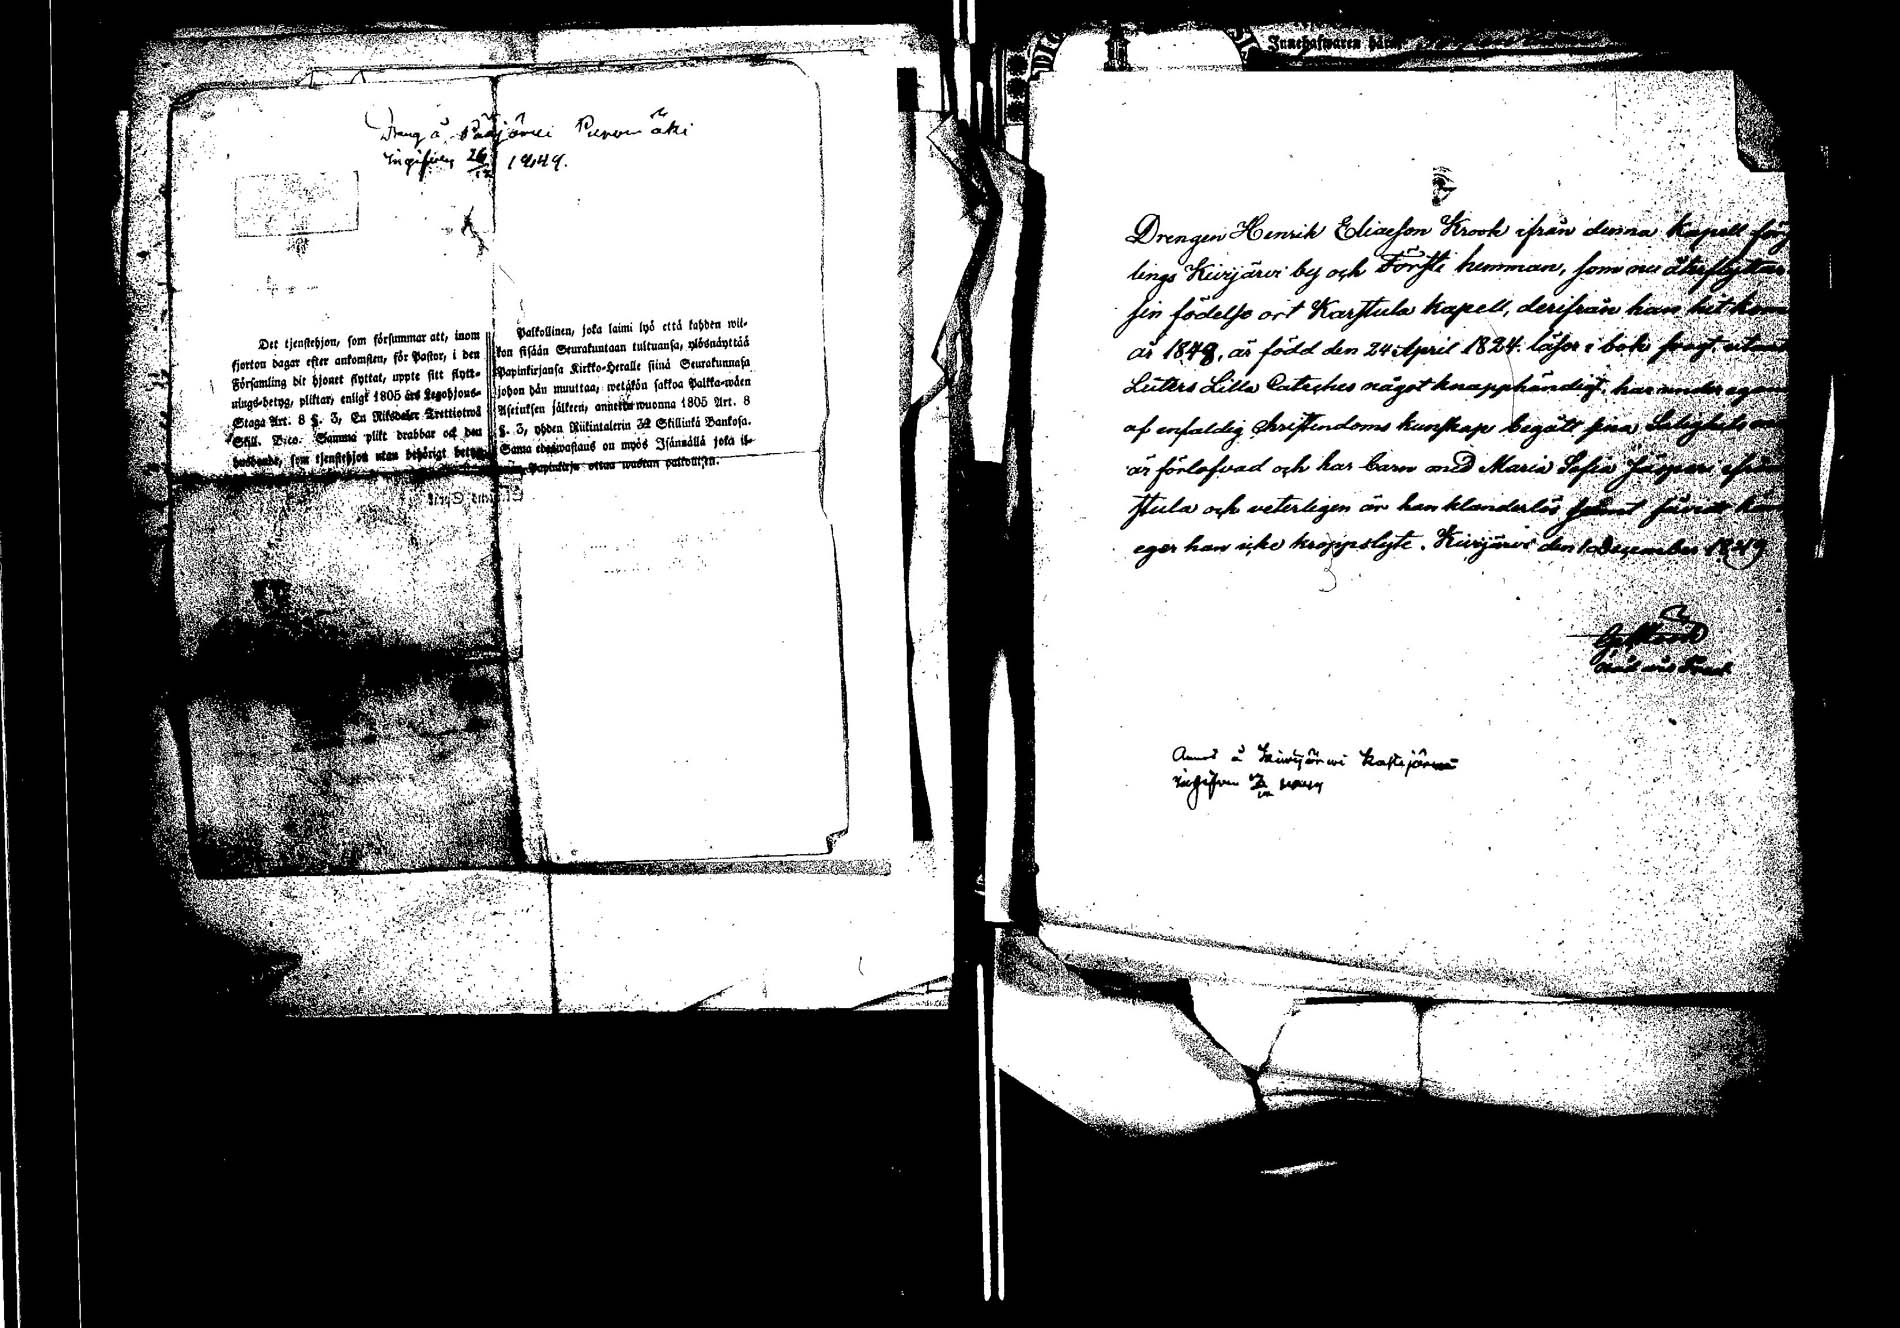 Dreng å Pääjärvi Puromäki
Ingifven 26/12 1849.
Det tjenstehjon, som försummar att, inom
fjorton dagar efter ankomsten, för Pastor, i den
Församling dit hjonet flyttat, uppte sitt flytt-
nings-betyg, pliktar, enligt 1805 års Legohjons-
Stega Art. 8 §. 3, En Riksdaler Trettiotwå
Skill. B:co. Samma plikt drabbar ock den
husbonde, som tjenstehjon utan behörigt betyg
Palkollinen, joka laimi lyö että kahden wii-
kon sisään Seurakuntaan tultuansa, ylösnäyttää
Papinkirjansa Kirkko-Herralle siinä Seurakunnasa
johon hän muuttaa, wetäkön sakkoa Palkka-wäen
Asetuksen jälkeen, annettu wuonna 1805 Art. 8
§. 3, yhden Riikintalerin 32 Skillinkiä Bankosa.
Sama edeswastaus on myös Isännällä joka il-
man Papinkirja ottaa wastan palkollisen.
Innehafwaren
Drengen Henrik Eliaeson Krook ifrån denna Kapell förs
lings Kivijärvi by och Förfti hemman, som nu återflyttar
sin födelse ort Karstula Kapell, derifrån han hit kom
år 1848, är född den 24 April 1824. läser i bok svagt, utan
Luters Lilla Cateches något knapphändigt, har under egen
af enfaldig Christendoms kunskap begått sina Salighets
är förlofvad och har barn med Maria Sofia ifrån
stula och veterligen är han klanderlös
eger han icke kroppslyte. Kivijärvi den December 1849
Anned å Kivijärvi
Ingifven